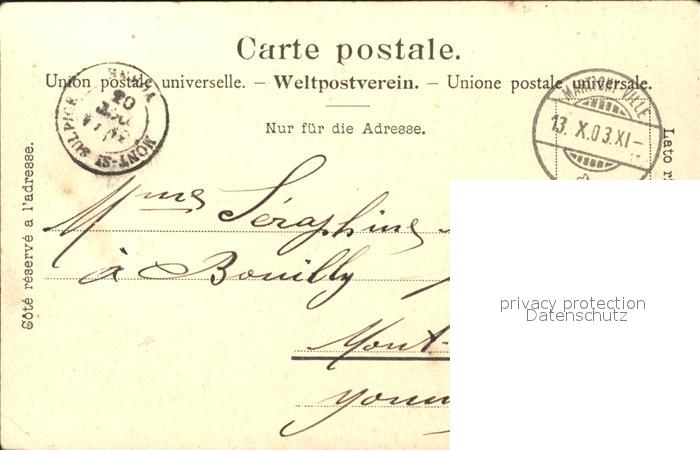 Carte postale.
Union postale universelle. – Weltpostverein. – Unione postale universale.
Nur für die Adresse.
Côté réservé à l'adresse.
Lato r
MARTIGNY VILLE
13. X. 03. XI –
MONT-St SULPICE
20
Mme Séraphine
à Bouilly
Mont-
Yonn
privacy protection
Datenschutz